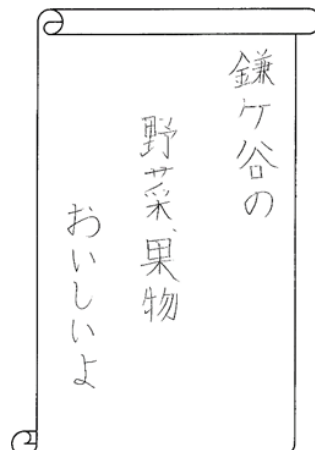 鎌ケ谷の
野菜、果物
おいしいよ